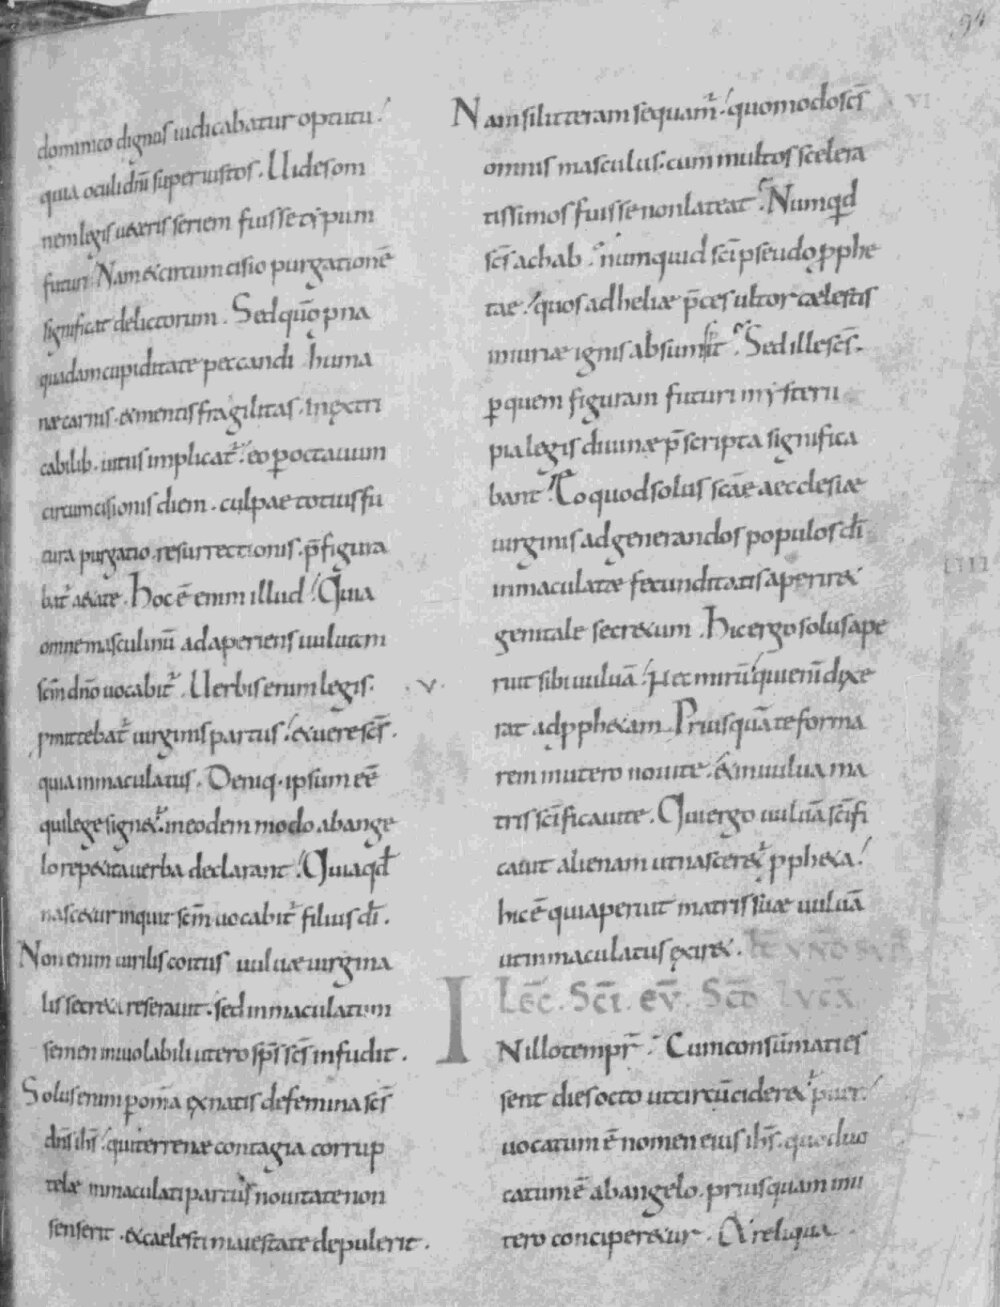 94
dominico dignus iudicabatur optutu.
quia oculi dn̄i super iustos. Uides om
nem legis ueteris seriem fuisse typum
futuri. Nam & circumcisio purgationē
significat delictorum. Sed quō pna
quadam cupiditate peccandi huma
næ carnis. & mentis fragilitas. inextri
cabilib. uitiis implicat̄. eo p octauum
circumcisionis diem. culpae totius fu
tura purgatio. resurrectionis. p̄figura
bat̄ aetate. Hoc ē enim illud. Quia
omne masculinū adaperiens uuluam
scm̄ dn̄o uocabit̄. Uerbis enim legis.
pmittebat̄ uirginis partus. & uere scs̄.
quia inmaculatus. Deniq. ipsum eē
qui lege signet̄. in eodem modo. ab ange
lo repetita uerba declarant. Quia qd̄
nascetur inquit scm̄ uocabit̄ filius dī.
Non enim uirilis coitus uuluæ uirgina
lis secreta reserauit. sed inmaculatum
semen inuiolabili utero sps̄ scs̄ infudit.
Solus enim p om̄ia ex natis de femina scs̄
dn̄s ihs̄. qui terrenæ contagia corrup
telæ inmaculati partus nouitate non
senserit. & caelesti maiestate depulerit.
Nam si litteram sequam̄. quomodo scs̄ VI
omnis masculus. cum multos scelera
tissimos fuisse non lateat. Numqd
scs̄ achab. numquid scī pseudo pphe
tae. quos ad heliæ p̄ces ultor cælestis
iniuriæ ignis absumsit. Sed ille scs̄.
p quem figuram futuri mysterii
pia legis diuinæ p̄scripta significa
bant. Eo quod solus scāe aecclesiæ
uirginis ad generandos populos dī
inmaculatæ fecunditatis aperiret
genitale secretum. Hic ergo solus ape
ruit sibi uuluā. Nec mirū. qui enī dixe
rat. ad pphetam. Priusquā te forma
rem in utero noui te. & in uulua ma
tris scīficaui te. Qui ergo uuluā scīfi
cauit alienam ut nasceret̄ ppheta.
hic ē qui aperuit matris suæ uuluā
ut inmaculatus exiret.
LEC̄. SCĪ. EV̄. SCD̄ LVCĀ
IN illo tempr̄. Cum consūmati es
sent dies octo ut circūcideret̄ puer.
uocatum ē nomen eius ihs̄. quod uo
catum ē ab angelo. priusquam in u
tero conciperetur. Et reliqua.
.V.
IIII